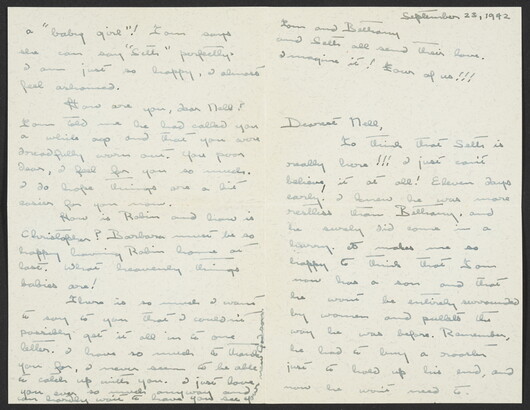 September 22, 1942
Tom and Bethany
and Seth all send their love.
Imagine it! Four of us!!!
Dearest Nell,
To think that Seth is
really here!!! I just can't
believe it at all! Eleven days
early. I knew he was more
restless than Bethany, and
he surely did come in a
hurry. It makes me so
happy to think that Tom
now has a son and that
he won't be entirely surrounded
by women and pullets the
way he was before. Remember,
he had to buy a rooster
just to hold up his end, and
now he won't need to.
a "baby girl"! Tom says
she can say "Seth" perfectly.
I am just so happy, I almost
feel ashamed.
How are you, dear Nell?
Tom told me he had called you
a while ago and that you were
dreadfully worn out. You poor
dear, I feel for you so much.
I do hope things are a bit
easier for you now.
How is Robin and how is
Christopher? Barbara must be so
happy having Robin home at
last. What heavenly things
babies are!
There is so much I want
to say to you that I couldn't
possibly get it all in to one
letter. I have so much to thank
you for, I never seem to be able
to catch up with you. I just love
you ever so much anyway and
can hardly wait to have you see